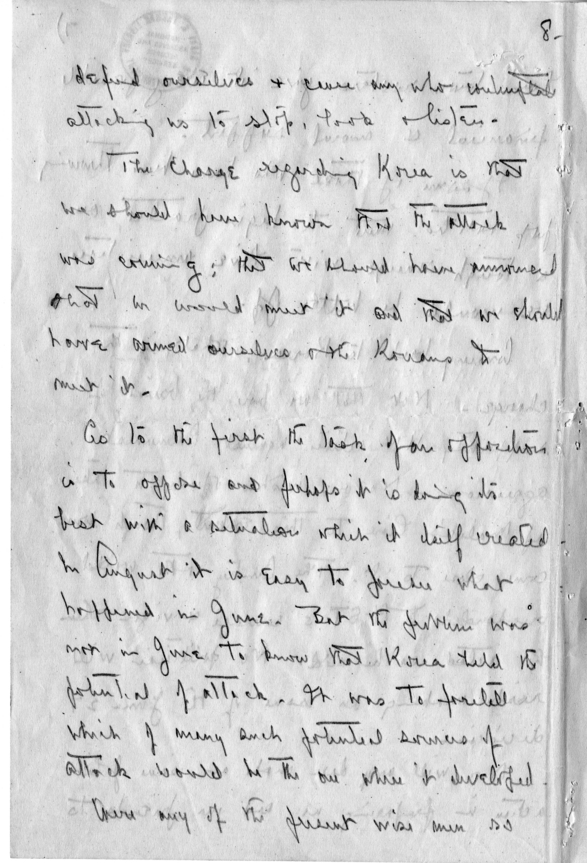 8-
defend ourselves & cause any who contemplated
attacking us to stop, look & listen.
The charge regarding Korea is that
we should have known that the attack
was coming; that we should have announced
that we would meet it and that we should
have armed ourselves & the Koreans to
meet it.
As to the first the task of an opposition
is to oppose and perhaps it is doing its
best with a situation which it itself created.
In August it is easy to foresee what
happened in June. But the problem was
not in June to know that Korea held the
potential of attack. It was to foretell
which of many such potential sources of
attack would be the one where it developed.
Were any of the present wise men so